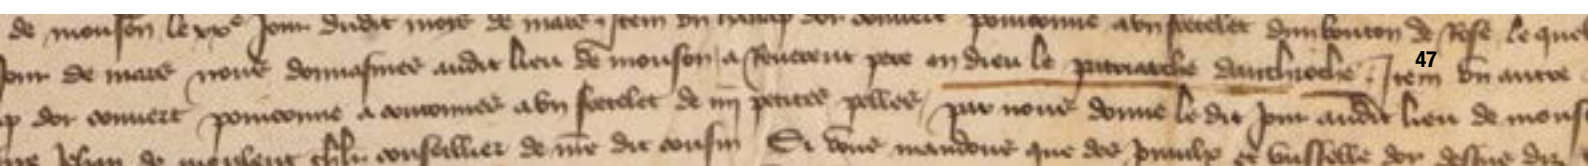 de monson le xxe jour dudit mois de mars Item un hanap dor couvert poinconne a un fretelet dun bouton de Rose lequel
jour de mars nous donnasmes audit lieu de monson a Reverent pere en dieu le patriarche danthioche. Item un autre
dor couvert poinconne a couronnes a un fretelet de iiij petites perles par nous donne le dit jour audit lieu de
Jehan de conseillier de me dit cousin Si vous mandons que des joyaulx et vesselle dor
47